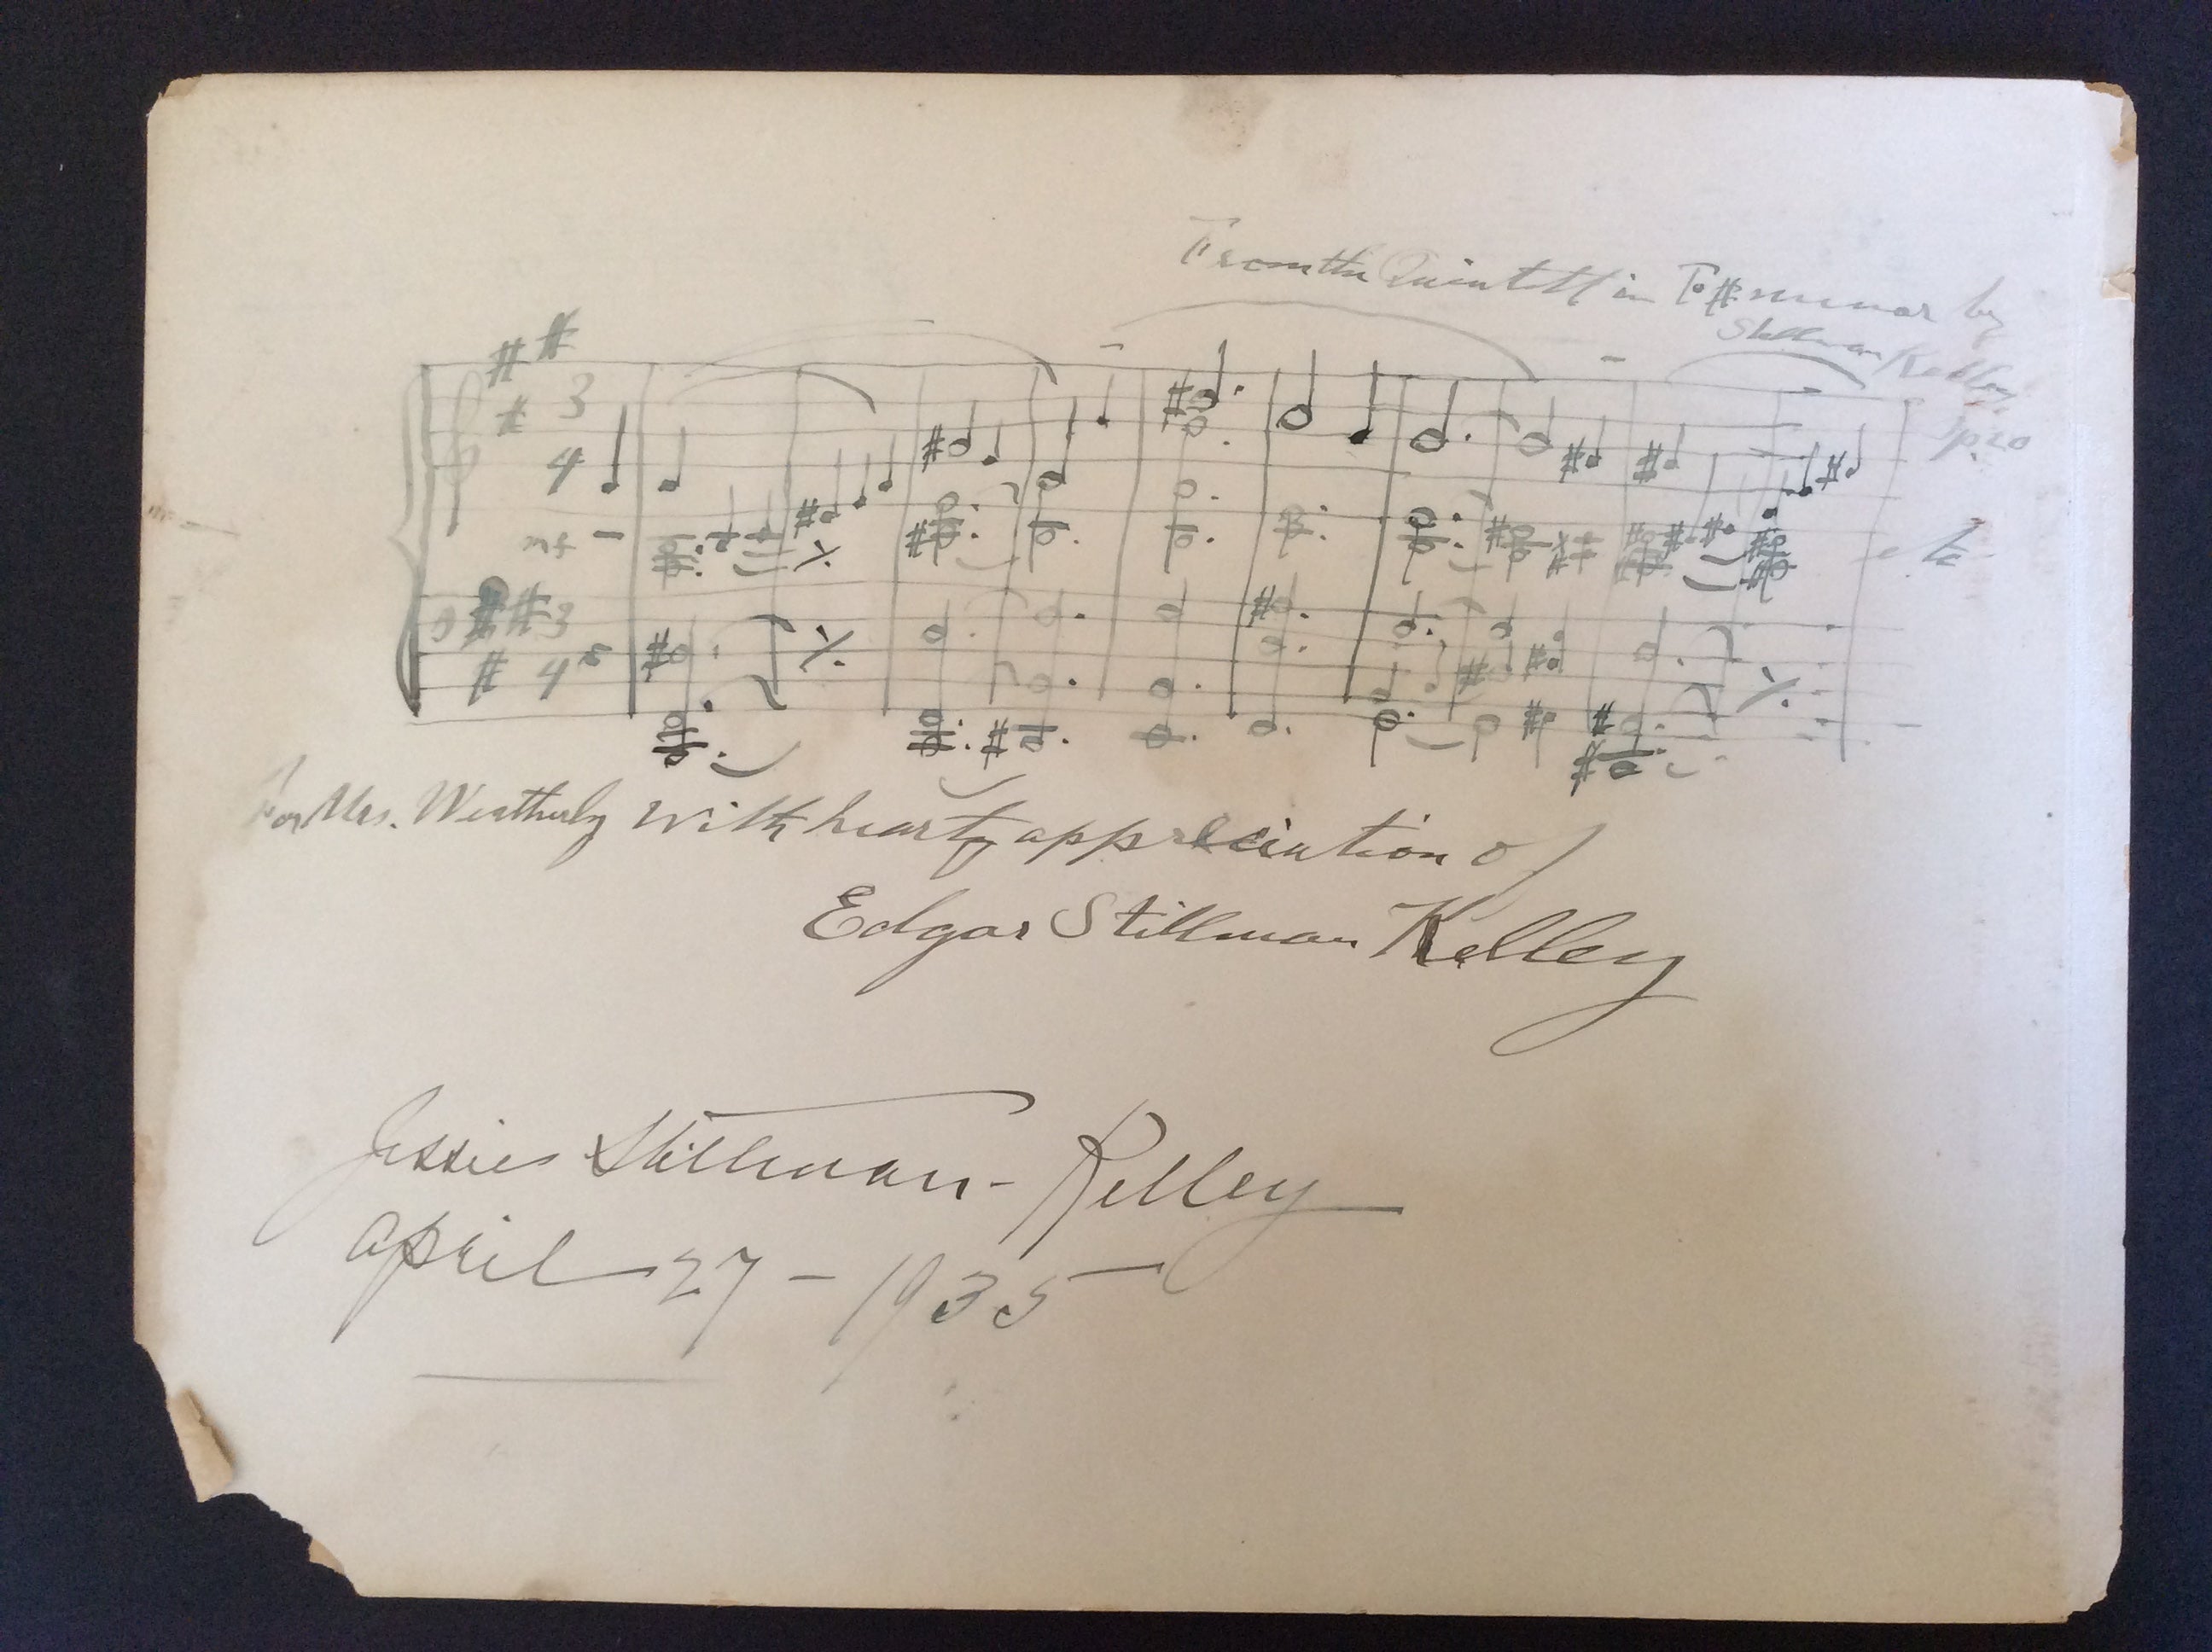 From the Quintett in F# minor by
Stillman Kelley.
3
4
mf
3
4
For Mrs. Weatherby with hearty appreciation of
Edgar Stillman Kelley
Jessie Stillman-Kelley
April 27-1935